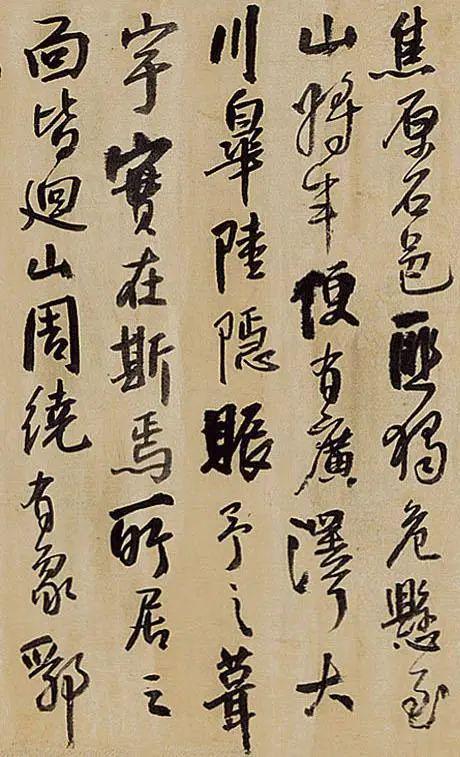 焦原石邑匪獨危懸至
山將半便有廣澤大
川皋陸隱賑予之葺
宇實在斯焉所居三
面皆迴山周繞有象郛